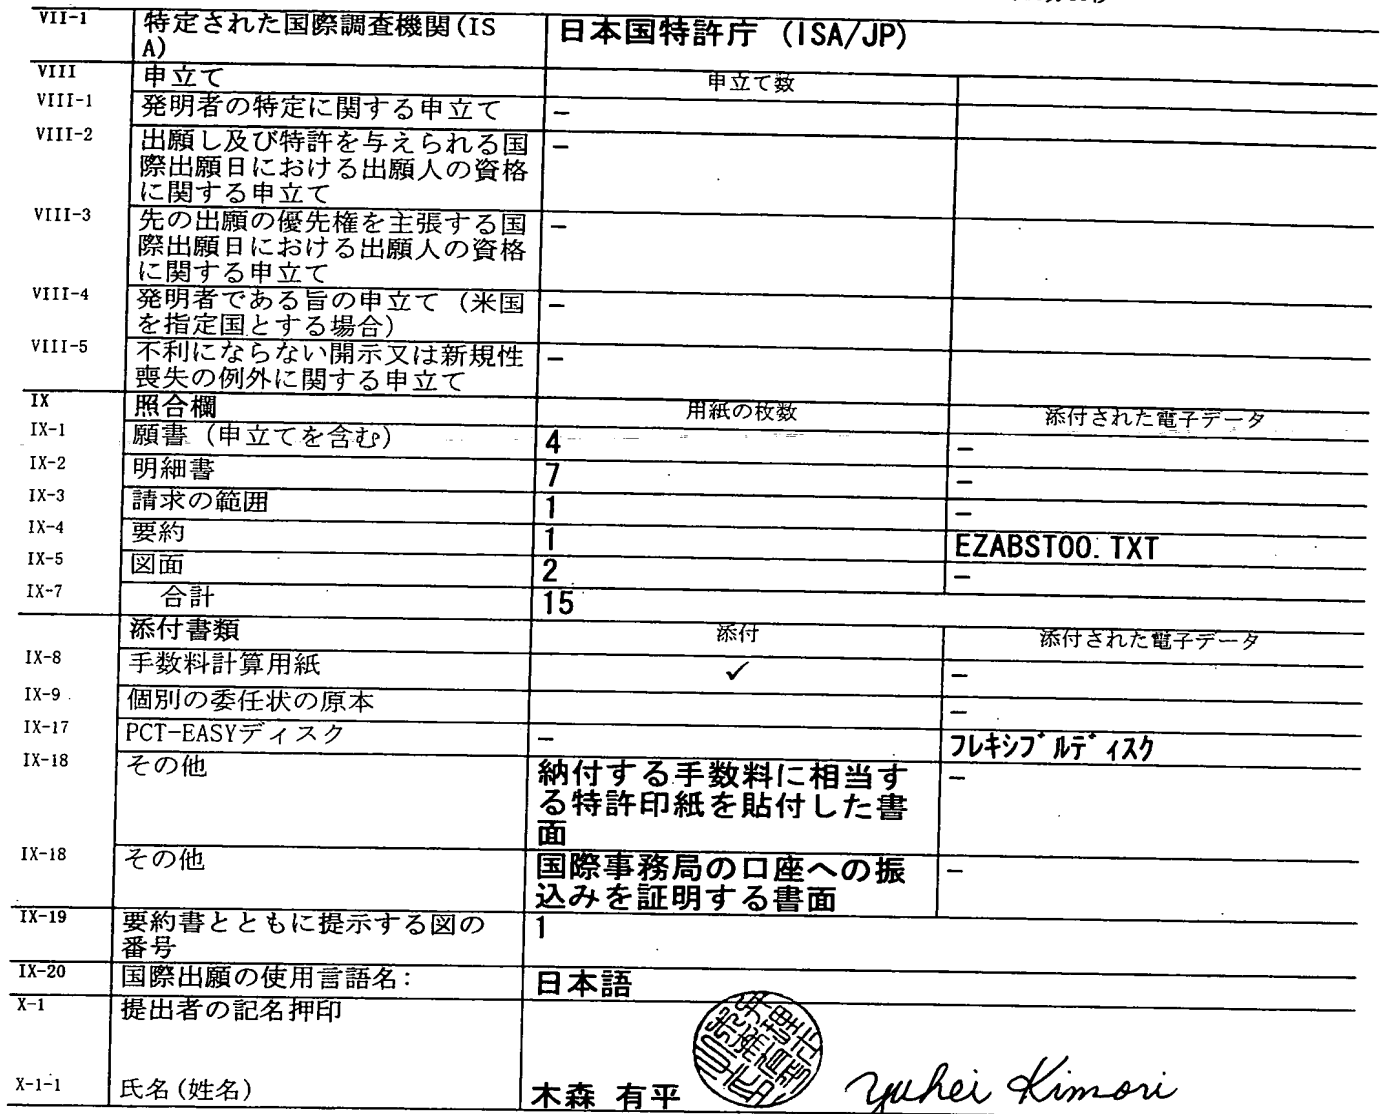 VII-1 特定された国際調査機関(IS
A) 日本国特許庁 (ISA/JP)
VIII 申立て 申立て数
VIII-1 発明者の特定に関する申立て –
VIII-2 出願し及び特許を与えられる国 –
際出願日における出願人の資格
に関する申立て
VIII-3 先の出願の優先権を主張する国 –
際出願日における出願人の資格
に関する申立て
VIII-4 発明者である旨の申立て (米国 –
を指定国とする場合)
VIII-5 不利にならない開示又は新規性 –
喪失の例外に関する申立て
IX 照合欄 用紙の枚数 添付された電子データ
IX-1 願書 (申立てを含む) 4 –
IX-2 明細書 7 –
IX-3 請求の範囲 1 –
IX-4 要約 1 EZABST00.TXT
IX-5 図面 2 –
IX-7 合計 15
添付書類 添付 添付された電子データ
IX-8 手数料計算用紙 ✓ –
IX-9 個別の委任状の原本 –
IX-17 PCT-EASYディスク – フレキシブルディスク
IX-18 その他 納付する手数料に相当す –
る特許印紙を貼付した書
面
IX-18 その他 国際事務局の口座への振 –
込みを証明する書面
IX-19 要約書とともに提示する図の 1
番号
IX-20 国際出願の使用言語名: 日本語
X-1 提出者の記名押印
X-1-1 氏名(姓名) 木森 有平 Yuhei Kimori